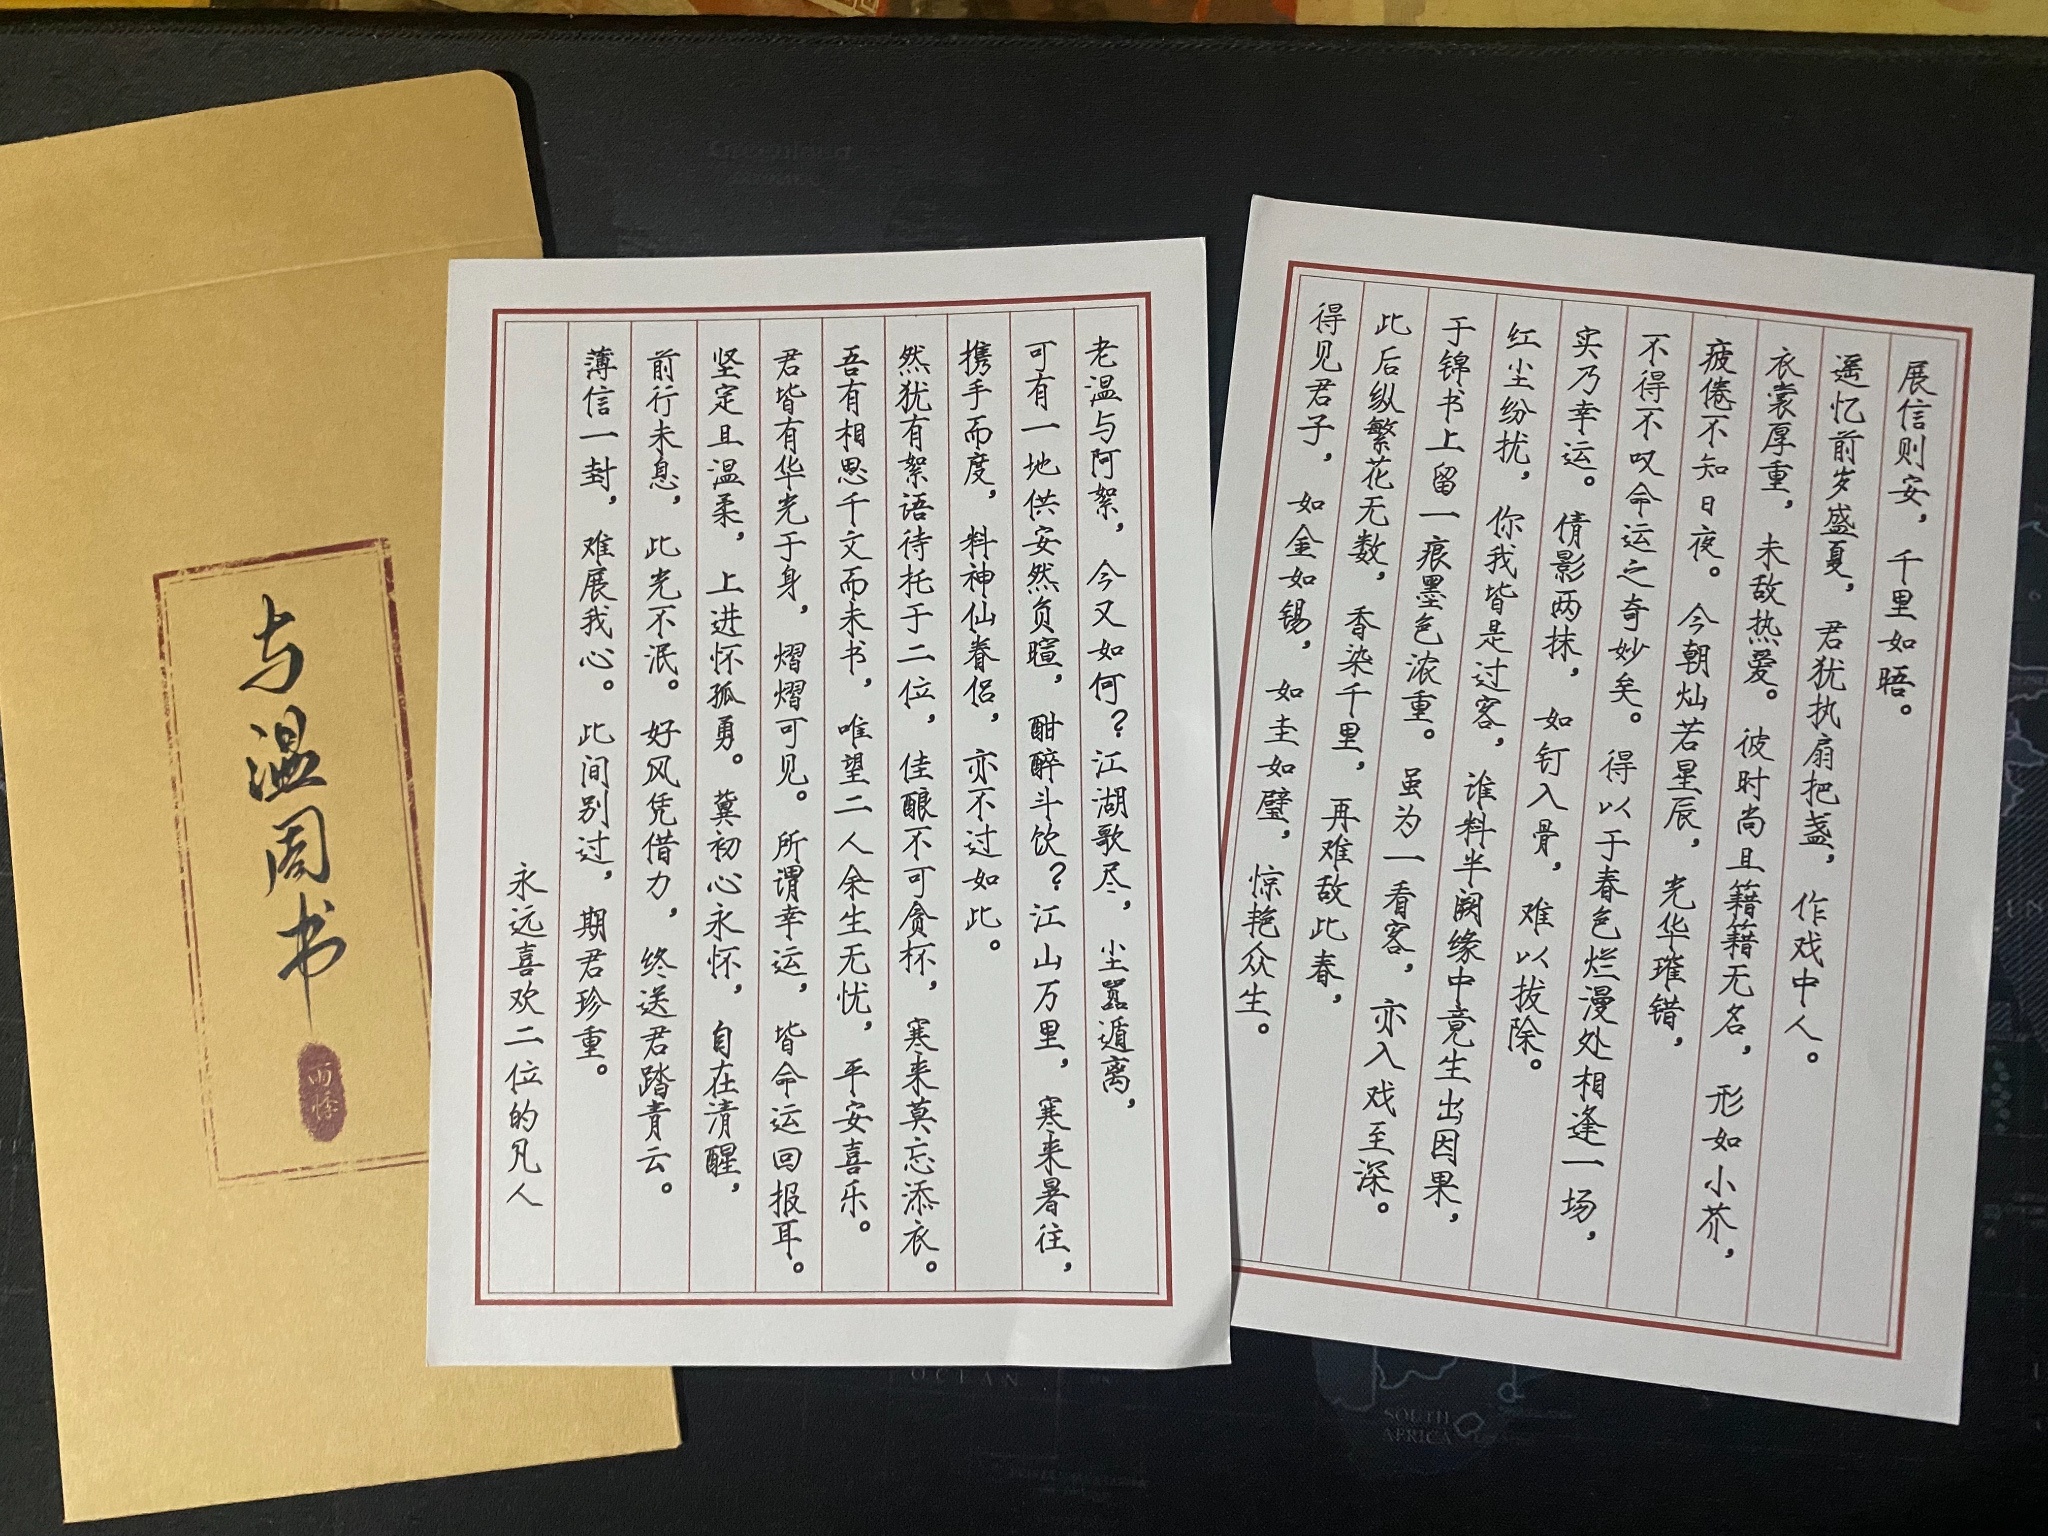 展信则安，千里如晤。
遥忆前岁盛夏，君犹执扇把盏，作戏中人。
衣裳厚重，未敌热爱。彼时尚且籍籍无名，形如小芥，
疲倦不知日夜。今朝灿若星辰，光华璀错，
不得不叹命运之奇妙矣。得以于春色烂漫处相逢一场，
实乃幸运。倩影两抹，如钉入骨，难以拔除。
红尘纷扰，你我皆是过客，谁料半阙缘中竟生出因果，
于锦书上留一痕墨色浓重。虽为一看客，亦入戏至深。
此后纵繁花无数，香染千里，再难敌此春，
得见君子，如金如锡，如圭如璧，惊艳众生。
老温与阿絮，今又如何？江湖歌尽，尘嚣遁离，
可有一地供安然负暄，酣醉斗饮？江山万里，寒来暑往，
携手而度，料神仙眷侣，亦不过如此。
然犹有絮语待托于二位，佳酿不可贪杯，寒来莫忘添衣。
吾有相思千文而未书，唯望二人余生无忧，平安喜乐。
君皆有华光于身，熠熠可见。所谓幸运，皆命运回报耳。
坚定且温柔，上进怀孤勇。冀初心永怀，自在清醒，
前行未息，此光不泯。好风凭借力，终送君踏青云。
薄信一封，难展我心。此间别过，期君珍重。
永远喜欢二位的凡人
与温周书
SOUTH
AFRICA
OCEAN